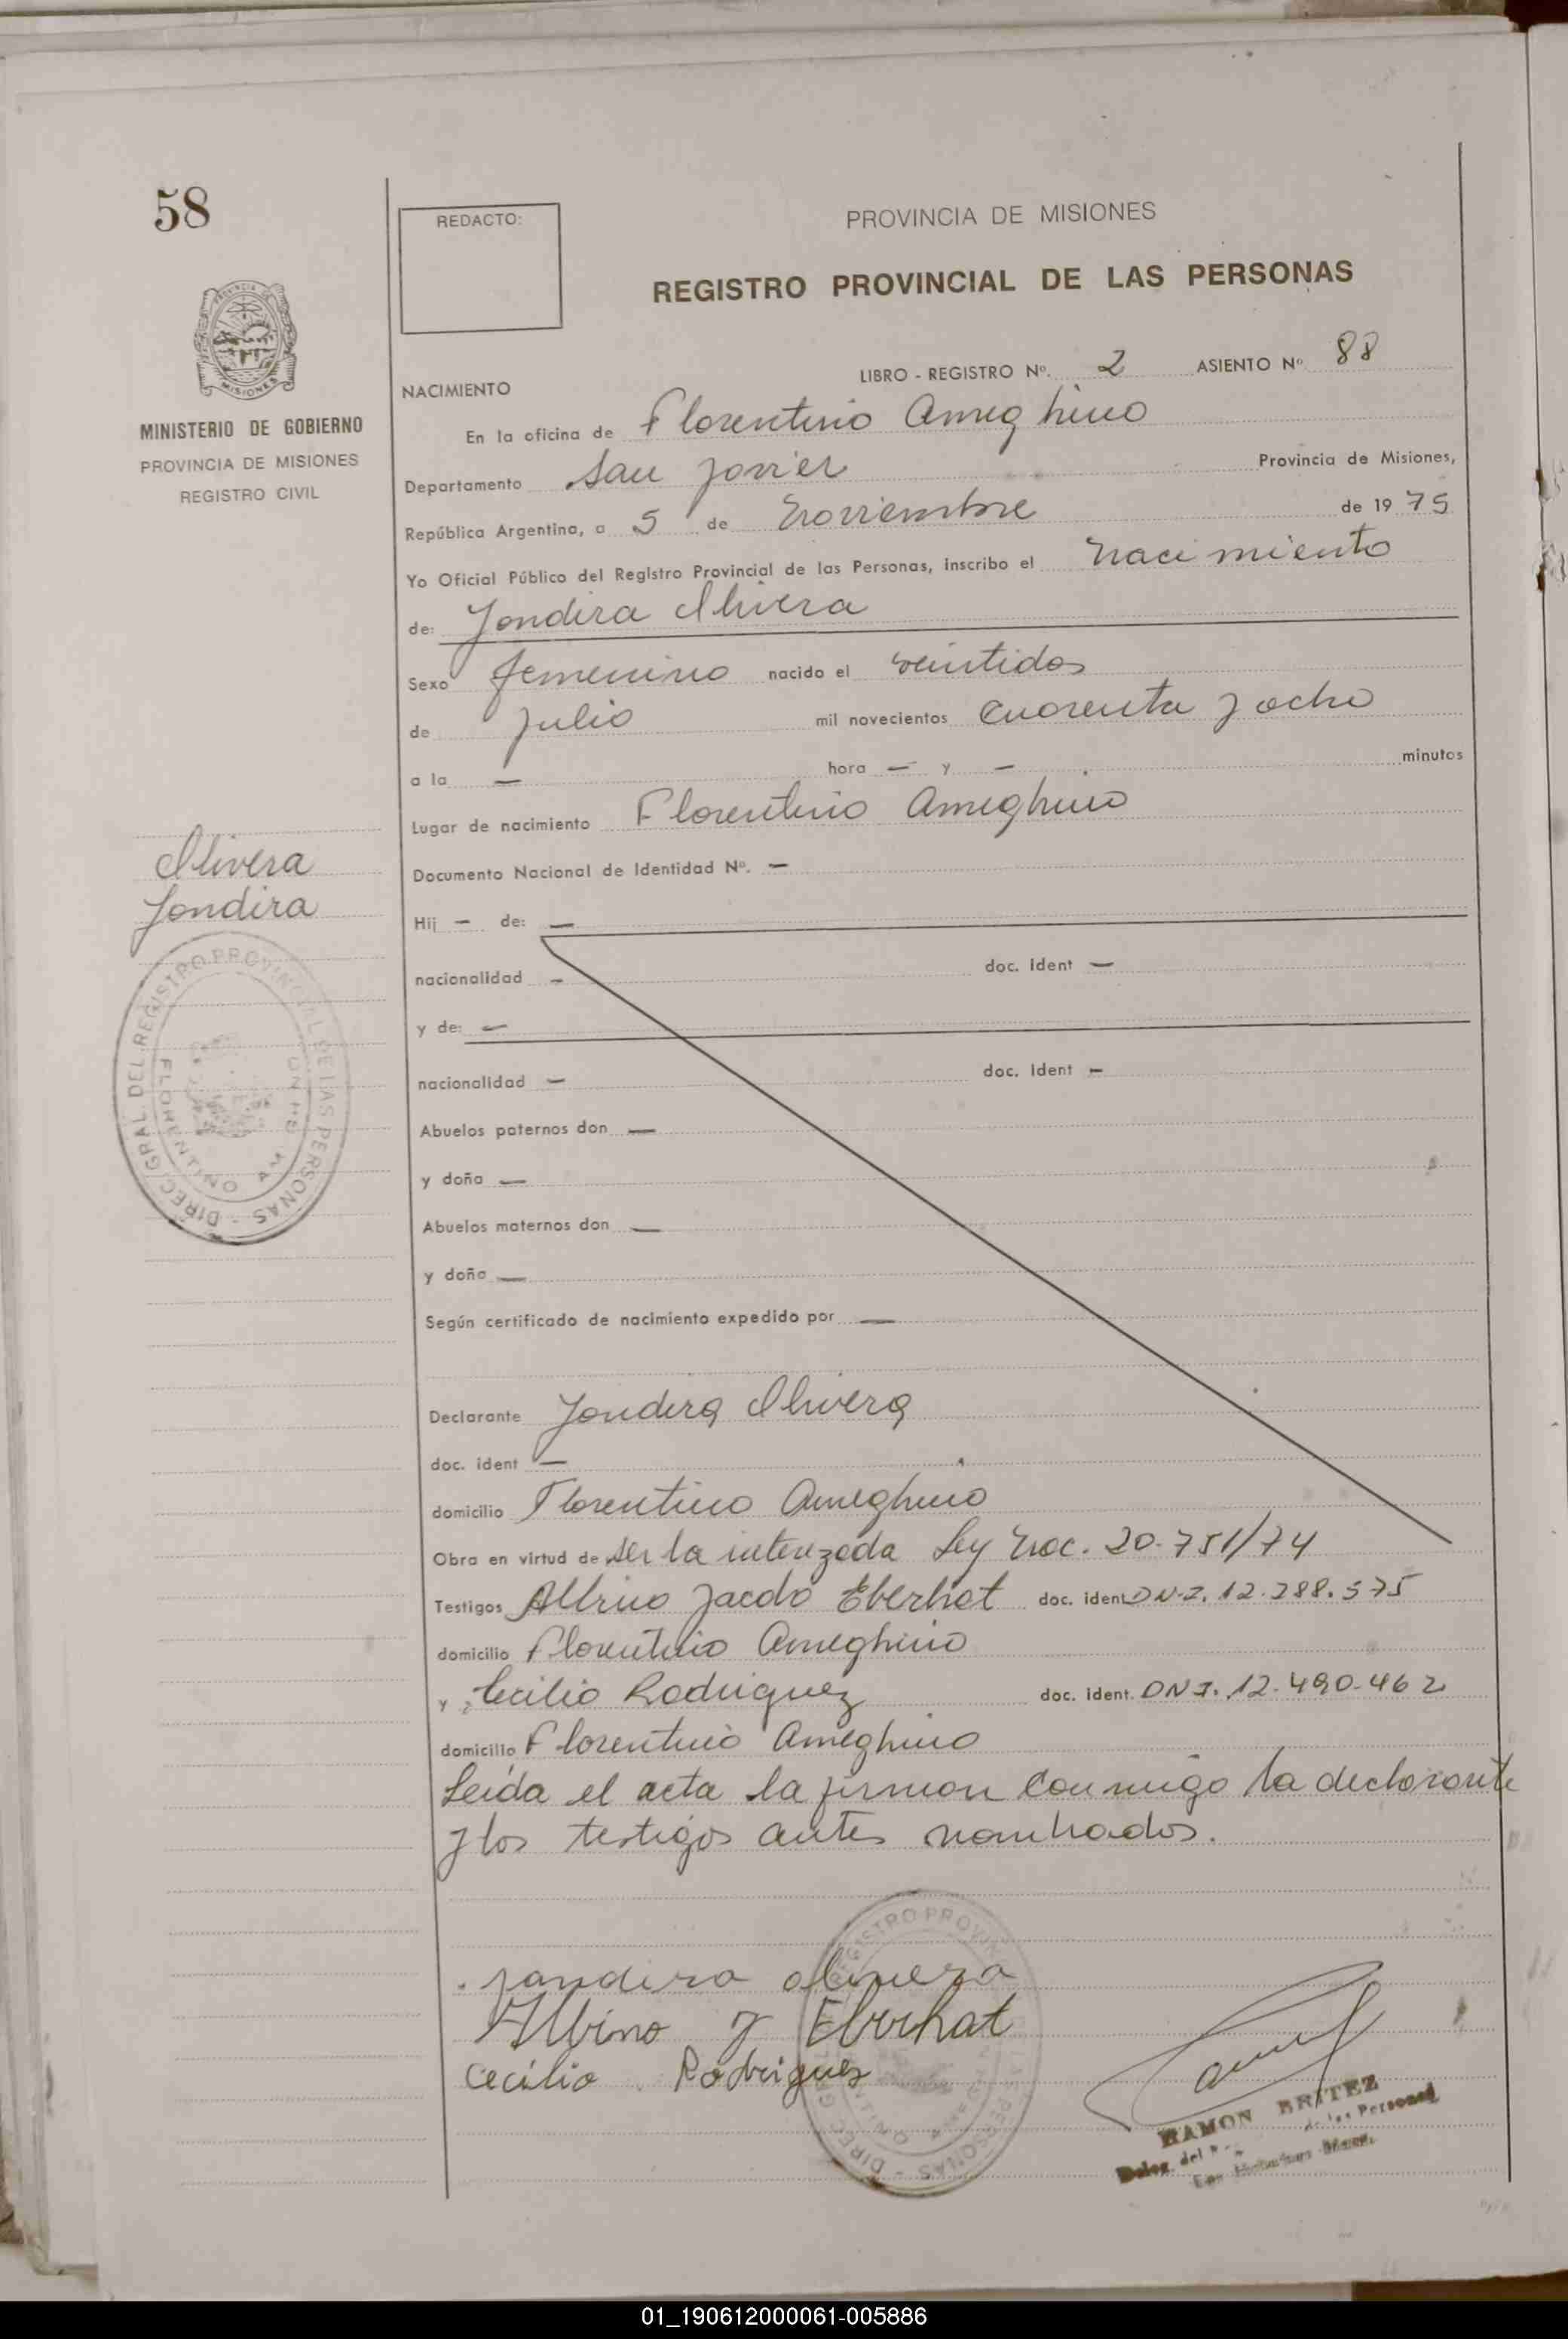 58
REDACTO:
PROVINCIA DE MISIONES
REGISTRO PROVINCIAL DE LAS PERSONAS
PROVINCIA DE
MISIONES
MINISTERIO DE GOBIERNO
PROVINCIA DE MISIONES
REGISTRO CIVIL
LIBRO - REGISTRO Nº. 2 ASIENTO Nº 88
NACIMIENTO
En la oficina de Florentino Ameghino
Departamento San Javier Provincia de Misiones,
República Argentina, a 5 de Noviembre de 1975
Yo Oficial Público del Registro Provincial de las Personas, inscribo el Nacimiento
de: Jandira Olivera
Sexo femenino nacido el veintidos
de Julio mil novecientos cuarenta y ocho
a la — hora — y — minutos
Lugar de nacimiento Florentino Ameghino
Olivera
Jandira
Documento Nacional de Identidad Nº. —
Hij — de: —
nacionalidad — doc. ident —
y de: —
nacionalidad — doc. ident —
Abuelos paternos don —
y doña —
Abuelos maternos don —
y doña —
Según certificado de nacimiento expedido por —
DIREC. GRAL. DEL REGISTRO PROVINCIAL DE LAS PERSONAS
FLORENTINO AMEGHINO
Declarante Jandira Olivera
doc. ident —
domicilio Florentino Ameghino
Obra en virtud de ser la interezada Ley Nac. 20.751/74
Testigos Albino Jacobo Eberhat doc. ident D.N.I. 12.288.575
domicilio Florentino Ameghino
y Cecilio Rodriguez doc. ident. DNI. 12.490.462
domicilio Florentino Ameghino
Leida el acta la firman conmigo la declarante
y los testigos antes nombrados.
Jandira olivera
Albino J Eberhat
Cecilio Rodriguez
RAMON BRITEZ
Deleg. del de las Personas
01_190612000061-005886